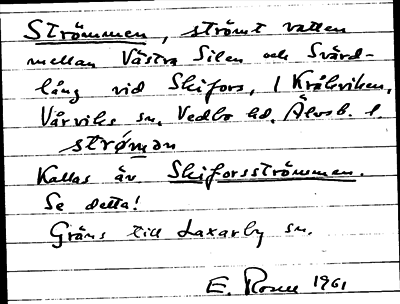 Strömmen, strömt vatten
mellan Västra Silen och Svärd-
lång vid Skifors, i Kråkviken,
Vårviks sn, Vedbo hd, Älvsb. l.
strǿmən
Kallas äv. Skiforsströmmen.
Se detta!
Gräns till Laxarby sn.
E. 1961